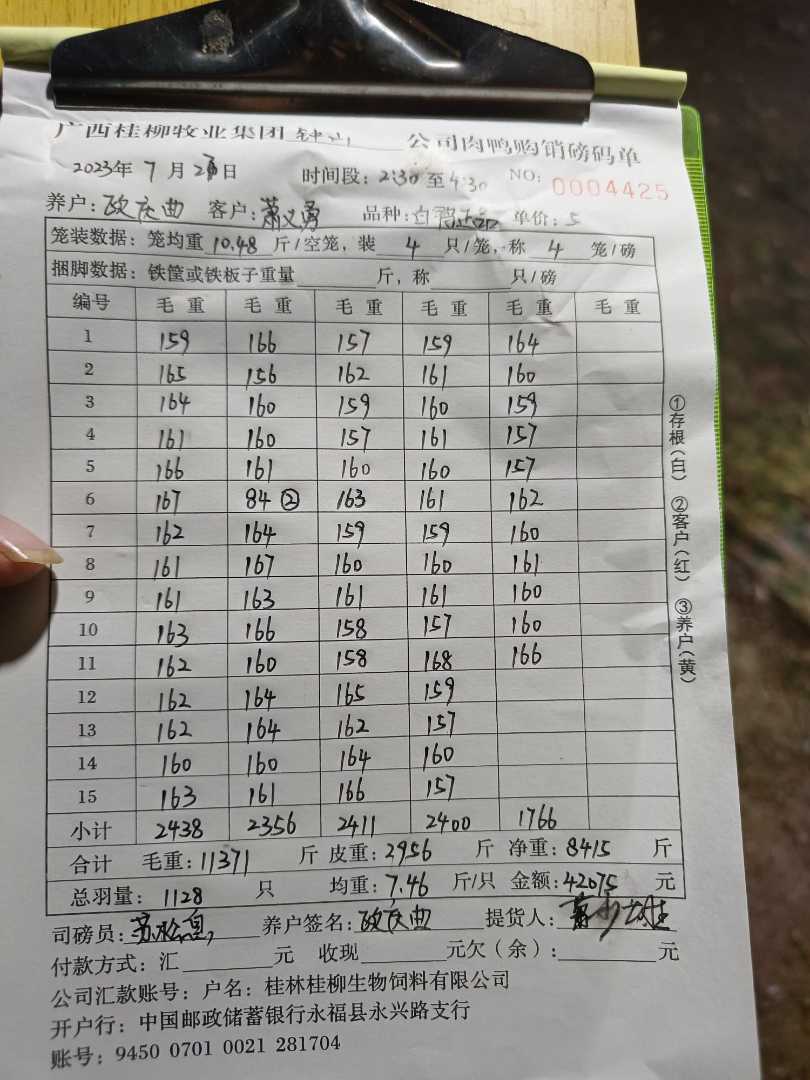 广西桂柳牧业集团钟山 公司肉鸭购销磅码单
2023年 7月 26日 时间段: 2:30 至 4:30 NO: 0004425
养户: 欧庆曲 客户: 萧义勇 品种: 白鸭 单价: 5
笼装数据: 笼均重 10.48 斤/空笼, 装 4 只/笼, 称 4 笼/磅
捆脚数据: 铁筐或铁板子重量 斤, 称 只/磅
编号 毛重 毛重 毛重 毛重 毛重 毛重
1 159 166 157 159 164
2 165 156 162 161 160
3 164 160 159 160 159
4 161 160 157 161 157
5 166 161 160 160 157
6 167 84 ② 163 161 162
7 162 164 159 159 160
8 161 167 160 160 161
9 161 163 161 161 160
10 163 166 158 157 160
11 162 160 158 168 166
12 162 164 165 159
13 162 164 162 157
14 160 160 164 160
15 163 161 166 157
小计 2438 2356 2411 2400 1766
合计 毛重: 11371 斤 皮重: 2956 斤 净重: 8415 斤
总羽量: 1128 只 均重: 7.46 斤/只 金额: 42075 元
司磅员: 养户签名: 欧庆曲 提货人:
付款方式: 汇 元 收现 元欠(余): 元
公司汇款账号: 户名: 桂林桂柳生物饲料有限公司
开户行: 中国邮政储蓄银行永福县永兴路支行
账号: 9450 0701 0021 281704
①存根(白) ②客户(红) ③养户(黄)